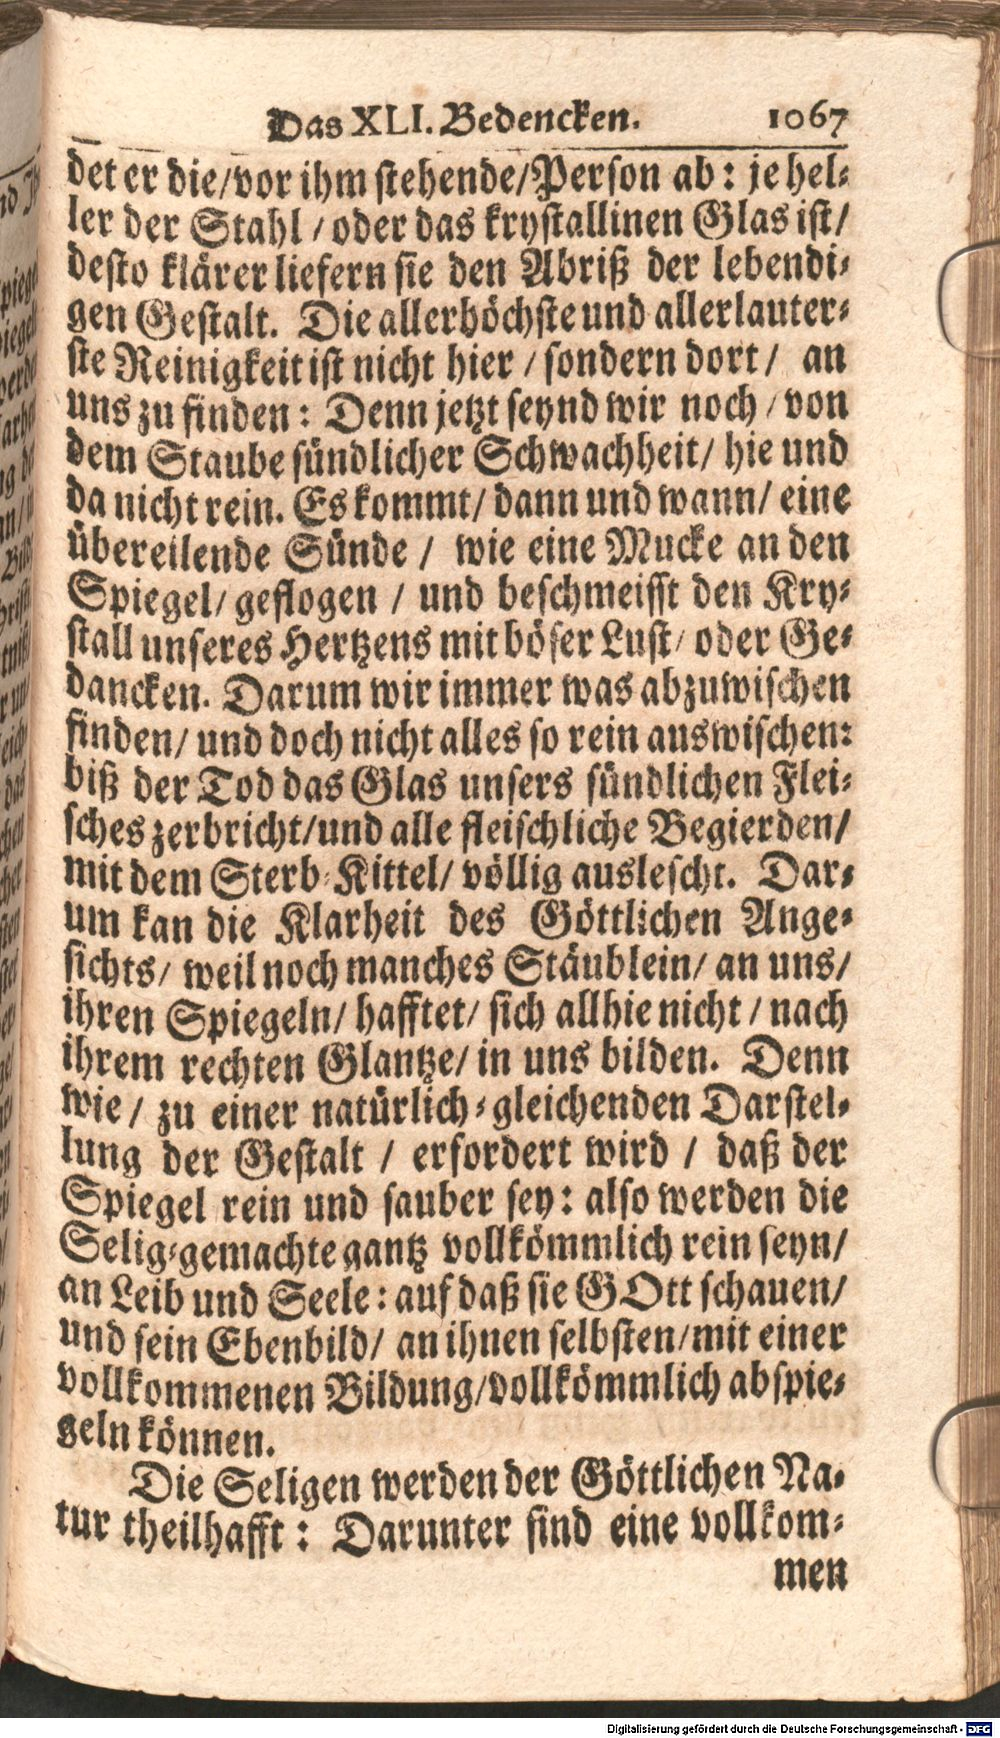 Das XLI. Bedencken. 1067
det er die/vor ihm stehende/Person ab: je hel-
ler der Stahl / oder das krystallinen Glas ist/
desto klärer liefern sie den Abriß der lebendi-
gen Gestalt. Die allerhöchste und allerlauter-
ste Reinigkeit ist nicht hier / sondern dort / an
uns zu finden: Denn jetzt seynd wir noch / von
dem Staube sündlicher Schwachheit/ hie und
da nicht rein. Es kommt/ dann und wann/ eine
übereilende Sünde / wie eine Mucke an den
Spiegel/ geflogen / und beschmeisst den Kry-
stall unseres Hertzens mit böser Lust/ oder Ge-
dancken. Darum wir immer was abzuwischen
finden/ und doch nicht alles so rein auswischen:
biß der Tod das Glas unsers sündlichen Flei-
sches zerbricht/und alle fleischliche Begierden/
mit dem Sterb-Kittel/ völlig auslescht. Dar-
um kan die Klarheit des Göttlichen Ange-
sichts/ weil noch manches Stäublein/ an uns/
ihren Spiegeln/ hafftet/ sich allhie nicht / nach
ihrem rechten Glantze/ in uns bilden. Denn
wie / zu einer natürlich-gleichenden Darstel-
lung der Gestalt / erfordert wird / daß der
Spiegel rein und sauber sey: also werden die
Selig-gemachte gantz vollkömmlich rein seyn/
an Leib und Seele: auf daß sie GOtt schauen/
und sein Ebenbild/ an ihnen selbsten/mit einer
vollkommenen Bildung/vollkömmlich abspie-
geln können.
Die Seligen werden der Göttlichen Na-
tur theilhafft: Darunter sind eine vollkom-
men
Digitalisierung gefördert durch die Deutsche Forschungsgemeinschaft - DFG